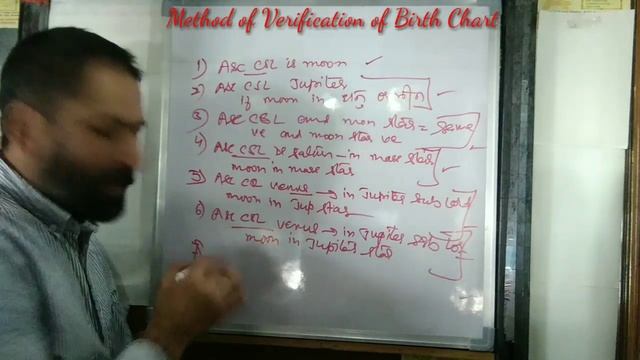 Method of Verification of Birth Chart
1) Asc CSL is moon ✓
2) Asc CSL Jupiter
if moon in धनु or मीन ✓
3) Asc CSL and moon star = same
ve and moon star ve
4) Asc CSL is saturn - in mars star
moon in mars star ✓
5) Asc CSL venus → in Jupiter sub lord
moon in Jup star
6) Asc CSL venus → in Jupiter sub lord
moon in Jupiter star